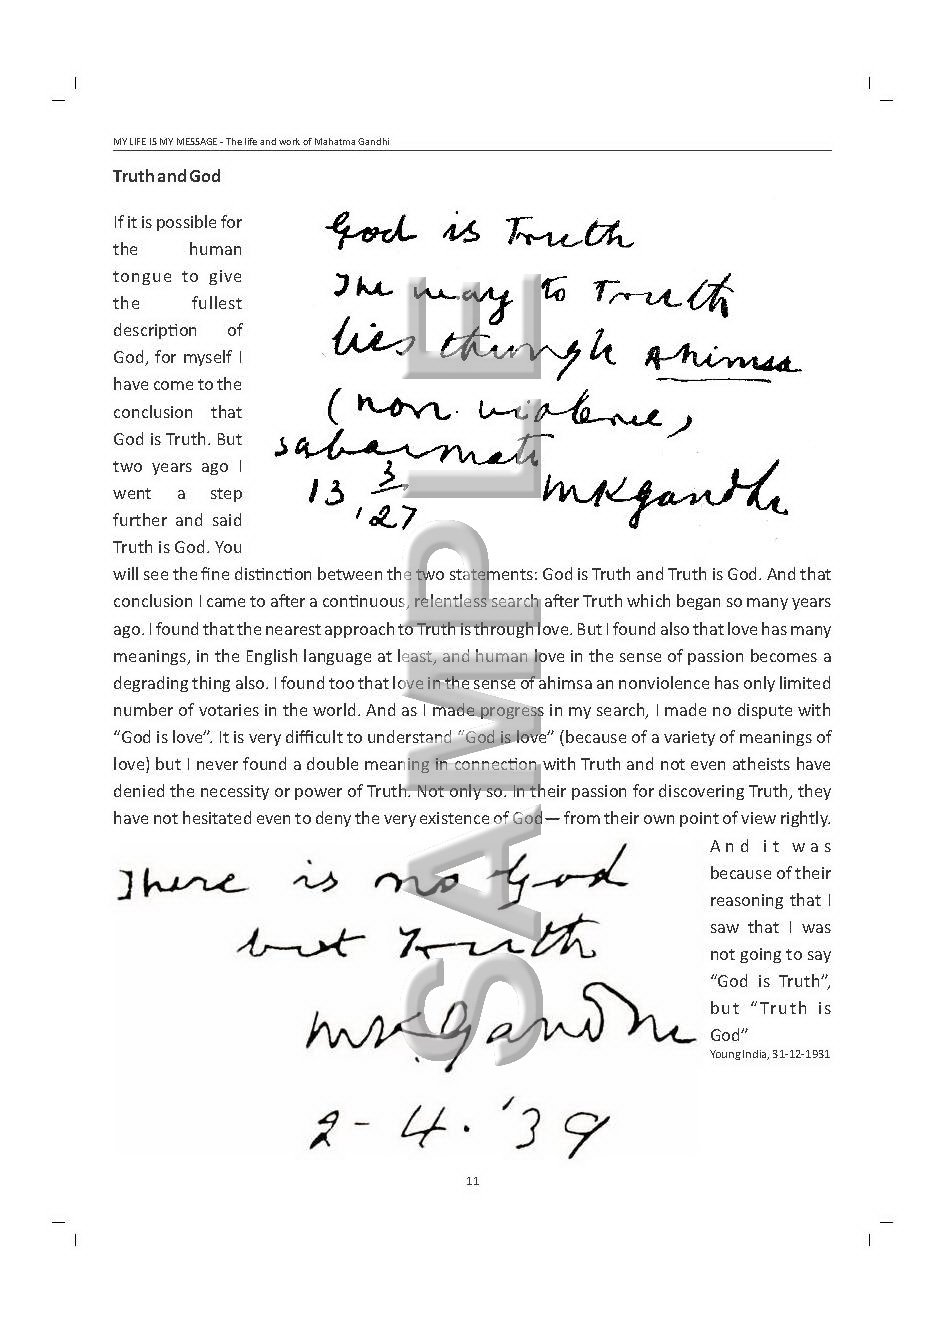 MY LIFE IS MY MESSAGE - The life and work of Mahatma Gandhi
Truth and God
If it is possible for
the human
tongue to give
the fullest
description of
God, for myself I
have come to the
conclusion that
God is Truth. But
two years ago I
went a step
further and said
Truth is God. You
God is Truth
The way to Truth
lies through ahimsa
(non violence)
sabarmati
13 3
'27
MKGandhi
will see the fine distinction between the two statements: God is Truth and Truth is God. And that
conclusion I came to after a continuous, relentless search after Truth which began so many years
ago. I found that the nearest approach to Truth is through love. But I found also that love has many
meanings, in the English language at least, and human love in the sense of passion becomes a
degrading thing also. I found too that love in the sense of ahimsa an nonviolence has only limited
number of votaries in the world. And as I made progress in my search, I made no dispute with
“God is love”. It is very difficult to understand “God is love” (because of a variety of meanings of
love) but I never found a double meaning in connection with Truth and not even atheists have
denied the necessity or power of Truth. Not only so. In their passion for discovering Truth, they
have not hesitated even to deny the very existence of God— from their own point of view rightly.
And it was
because of their
reasoning that I
saw that I was
not going to say
“God is Truth”,
but “Truth is
God”
Young India, 31-12-1931
There is no God
but Truth
MKGandhi
2-4.'39
11
SAMPLE